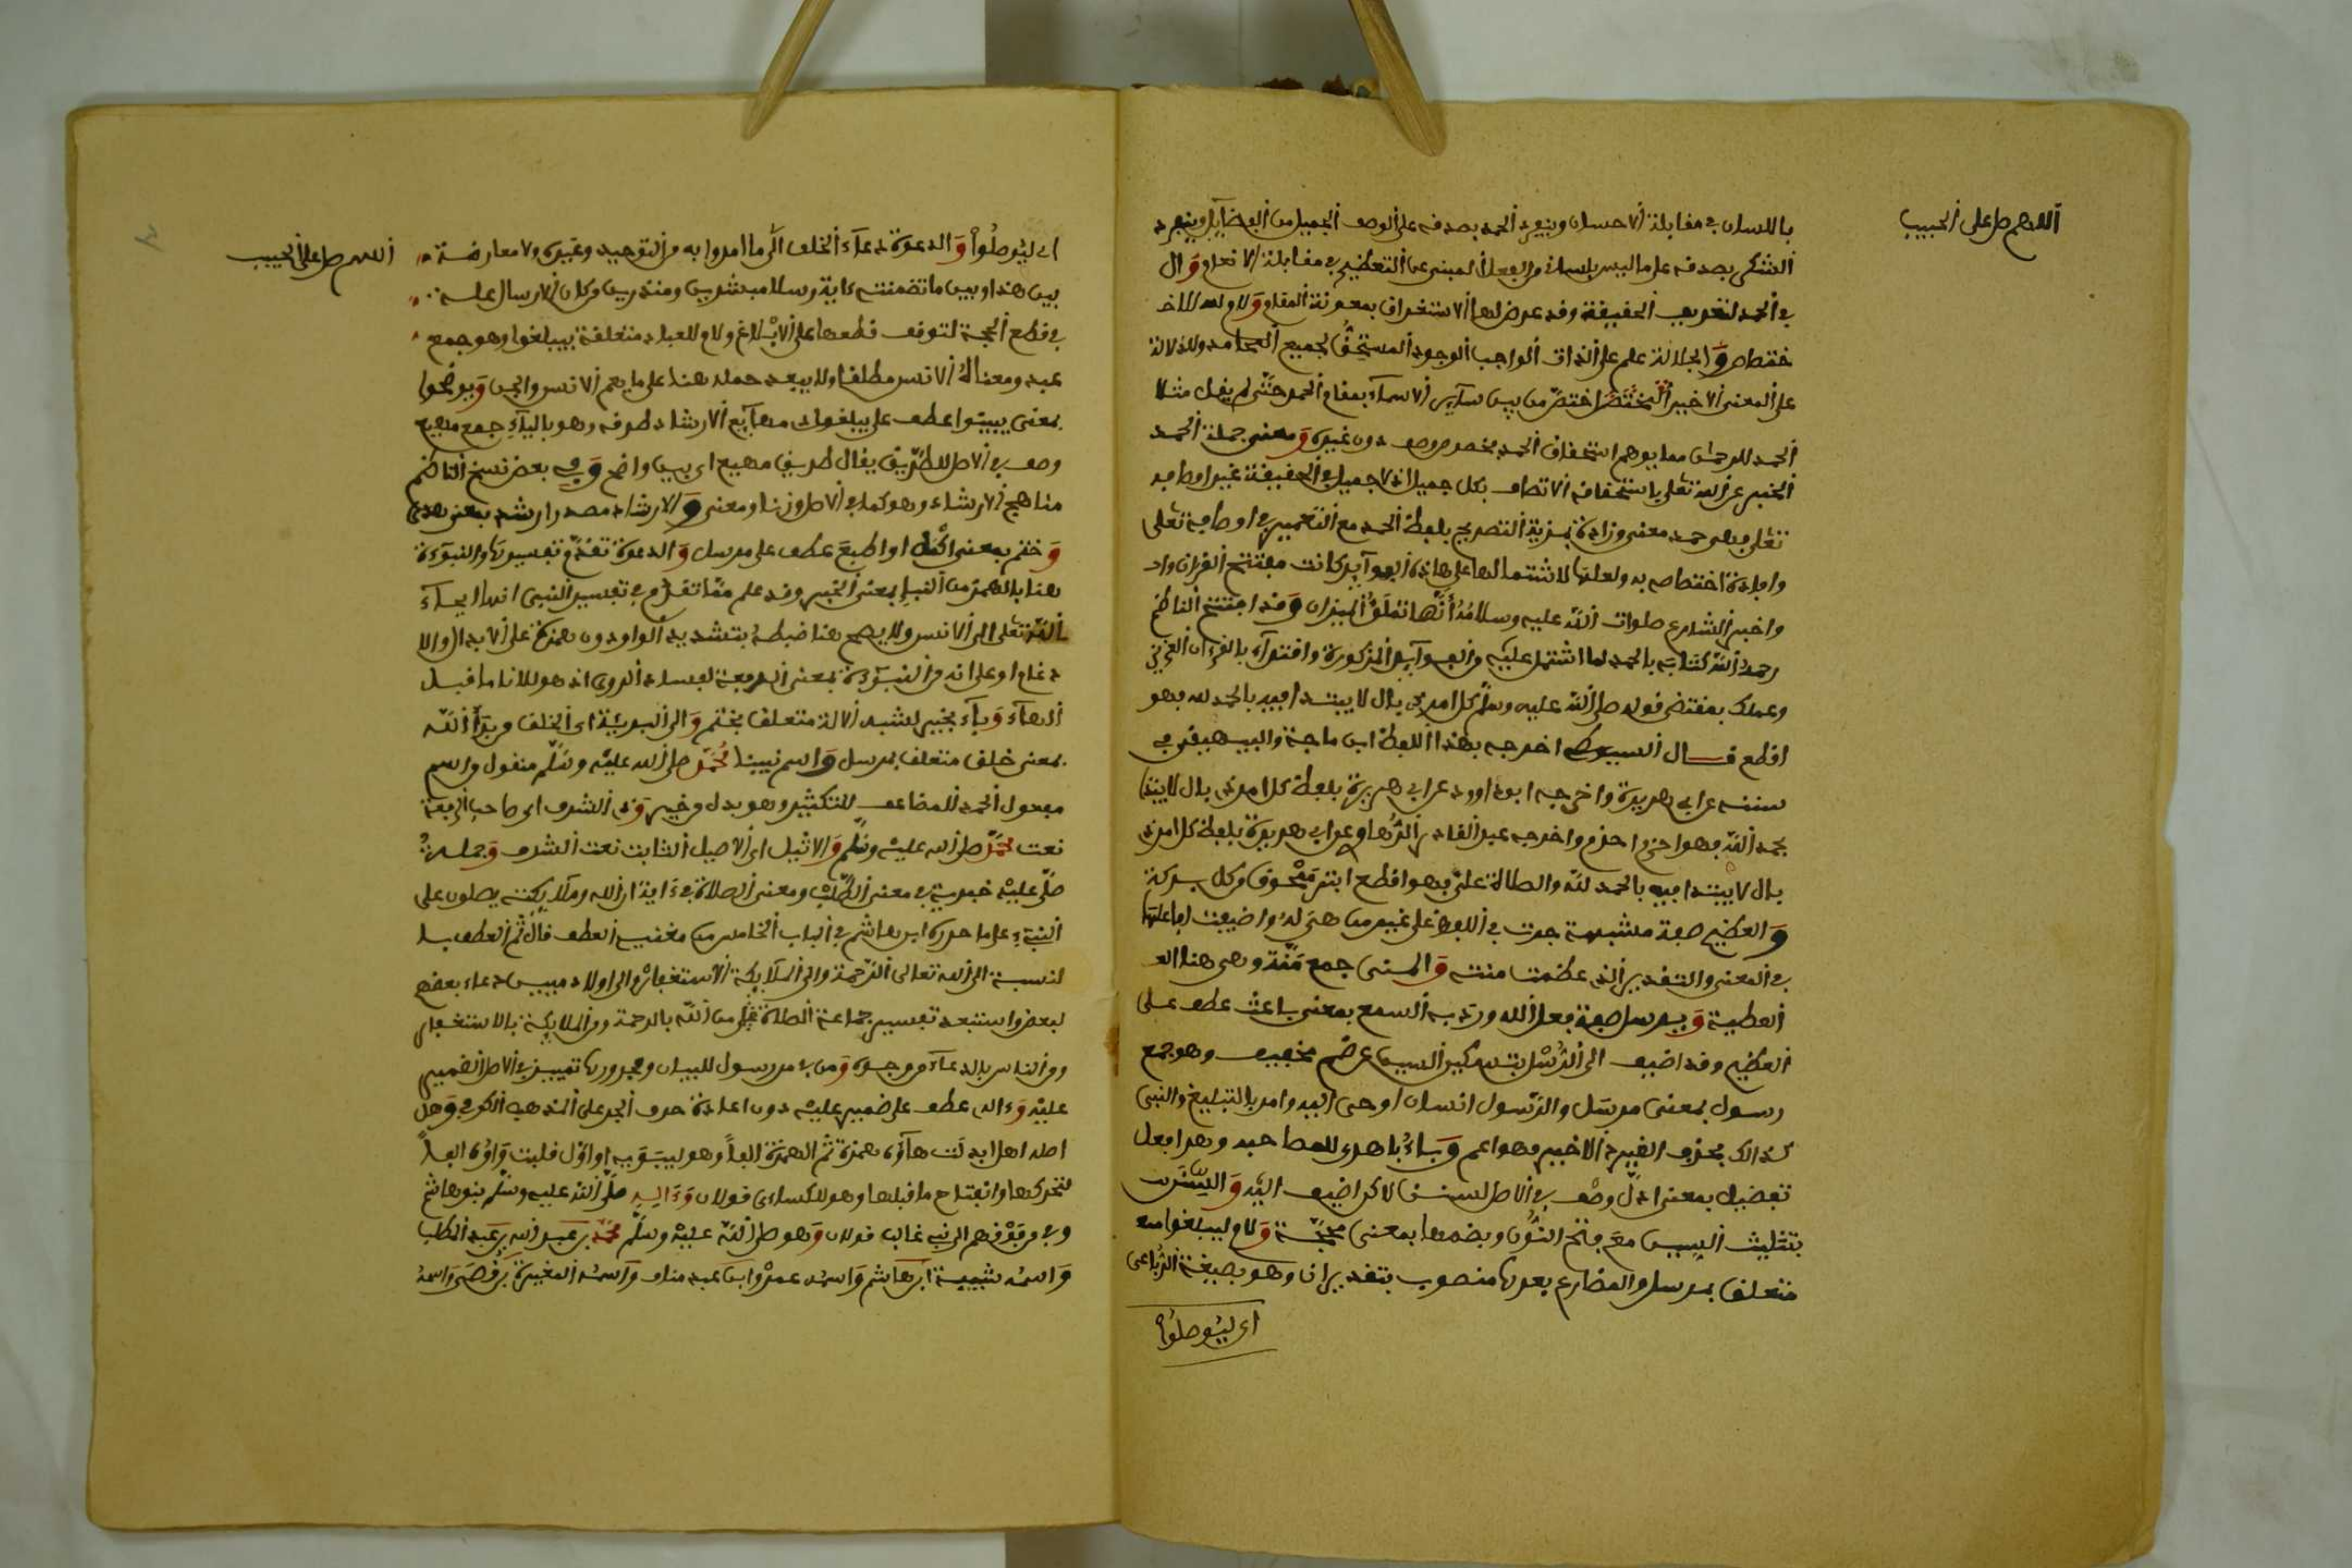 اللهم صل على الحبيب
باللسان في مقابلة الاحسان وينفرد الحمد بصدقه على الوصف الجميل من الفضايل وينفرد
الشكر بصدقه على ما ليس باللسان من الفعل المبني عن التعظيم في مقابلة الانعام وال
في الحمد لتعريف الحقيقة وقد عرض لها الاستغراق بمعونة المقام ولام لله للاخ
ختصاص والجلالة علم على الذات الواجب الوجود المستحق لجميع المحامد وللدلالة
على المعنى الاخير المختص اختص من بين ساير الاسماء بمقام الحمد حتى لم يقل مثلا
الحمد للرحمن مما يوهم استحقاق الحمد بخصوص وصف دون غيره ومعنى جملة الحمد
الخبر عن الله تعلى باستحقاقه الاتصاف بكل جميل اذ لا جميل في الحقيقة غير اوصافه
تعلى وهي حمد معنى وزادة بمزية التصريح بلفظ الحمد مع التعميم في اوصافه تعلى
وافادة اختصاصه به ولعلها لاشتمالها على هاذه الفوايد كانت مفتتح القران واد
واخبر الشارع صلوات الله عليه وسلامه انها تملؤ الميزان وقد افتتح الناظم
رحمه الله كتابه بالحمد لما اشتمل عليه من الفوايد المذكورة واقتداء بالقرءان العزيز
وعملا بمقتضى قوله صلى الله عليه وسلم كل امر ذي بال لا يبتدا فيه بالحمد لله فهو
اقطع قال السيوطي اخرجه بهذا اللفظ ابن ماجة والبيهقي في
سننه عن ابي هريرة واخرجه ابو داوود عن ابي هريرة بلفظ كل امر ذي بال لا يبتدا
بحمد الله فهو اجزم واخرجه عبد القادر الرهاوي عن ابي هريرة بلفظ كل امر ذي
بال لا يبتدا فيه بالحمد لله والصلاة علي فهو اقطع ابتر ممحوق من كل بركة
والعظيم صفة مشبهة جرت في اللفظ على غير من هي له واضيفت لفاعلها
في المعنى والتقدير الذي عظمت مننه والمنن جمع منة وهي هنا الع
العطية ومرسل صفة فعل الله ورد به السمع بمعنى باعث عطف على
العظيم وقد اضيف الى الرسل بتسكين السين عن ضم تخفيف وهو جمع
رسول بمعنى مرسل والرسول انسان اوحي اليه وامر بالتبليغ والنبي
كذالك بحذف القيد الاخير فهو اعم وباء باهدى للمصاحبة وهو افعل
تفضيل بمعنى ادل وصف في الاصل للسنن لاكن اضيف اليه والسنن
بتثليث السين مع فتح النون وبضمها بمعنى محجة ولام ليبلغوا
متعلق بمرسل والمضارع بعدها منصوب بتقدير ان وهو بصيغة الرباعي
اي ليوصلوا
اللهم صل على الحبيب
اي ليوصلوا والدعوة دعاء الخلق الى ما امروا به من التوحيد وغيره ولا معارضة
بين هذا وبين ما تضمنته ءاية رسلا مبشرين ومنذرين من كان الارسال علة
في قطع الحجة لتوقف قطعها على الابلاغ ولام للعباد متعلقة بيبلغوا وهو جمع
عبد ومعناه الانس مطلقا ولا يبعد حمله هنا على ما يعم الانس والجن ويوضحوا
بمعنى يبينوا عطف على يبلغوا ومهايع الارشاد طرقه وهو بالياء جمع مهيع
وصف في الاصل للطريق يقال طريق مهيع اي بين واضح وفي بعض نسخ الناظم
مناهج الارشاد وهو كما في الاصل وزنا ومعنى والارشاد مصدر ارشد بمعنى هدى
وختم بمعنى اكمل او طبع عطف على مرسل والدعوة تقدم تفسيرها والنبوءة
هنا بالهمز من النبإ بمعنى الخبر وقد علم مما تقدم في تفسير النبي انها ايحاء
الله تعلى الى الانس ولا يصح هنا ضبطه بتشديد الواو دون همزة على الابدال والا
دغام او على انه من النبوة بمعنى الرفعة لفساد الروي اذ هو للاناما قبل
الهاء وباء بخير لشبه الالة متعلق بختم والى البرية اي الخلق من برأ الله
بمعنى خلق متعلق بمرسل واسم نبينا محمد صلى الله عليه وسلم منقول من اسم
مفعول الحمد المضاعف للتكثير وهو بدل من خير وذي الشرف اي صاحب الرفعة
نعت محمد صلى الله عليه وسلم والاثيل اي الاصيل الثابت نعت الشرف وجملة
صلى عليه خبرية في معنى الطلب ومعنى الصلاة في ءاية ان الله وملايكته يصلون على
النبيء على ما حرره ابن هشام في الباب الخامس من مغنيه العطف قال ثم العطف با
لنسبة الى الله تعالى الرحمة والى الملايكة الاستغفار والى الاولاد ميين دعاء بعضهم
لبعض واستبعد تفسير جماعة الصلاة من الله بالرحمة ومن الملايكة بالاستغفار
ومن الناس بالدعاء من وجوه ومن في من رسول للبيان ومجرورها تمييز في الاصل لضمير
عليه وءال عطف على ضمير عليه دون اعادة حرف الجر على المذهب الكوفي وهل
اصله اهل ابدلت هاؤه همزة ثم الهمزة الفا وهو لسيبويه او اول قلبت واوه الفا
لتحركها وانفتاح ما قبلها وهو للكساءي قولان وءاله صلى الله عليه وسلم بنو هاشم
وفي من فوقهم الى بني غالب قولان وهو صلى الله عليه وسلم محمد بن عبد الله بن عبد المطلب
واسمه شيبة ابن هاشم واسمه عمرو ابن عبد مناف واسمه المغيرة بن قصي واسمه